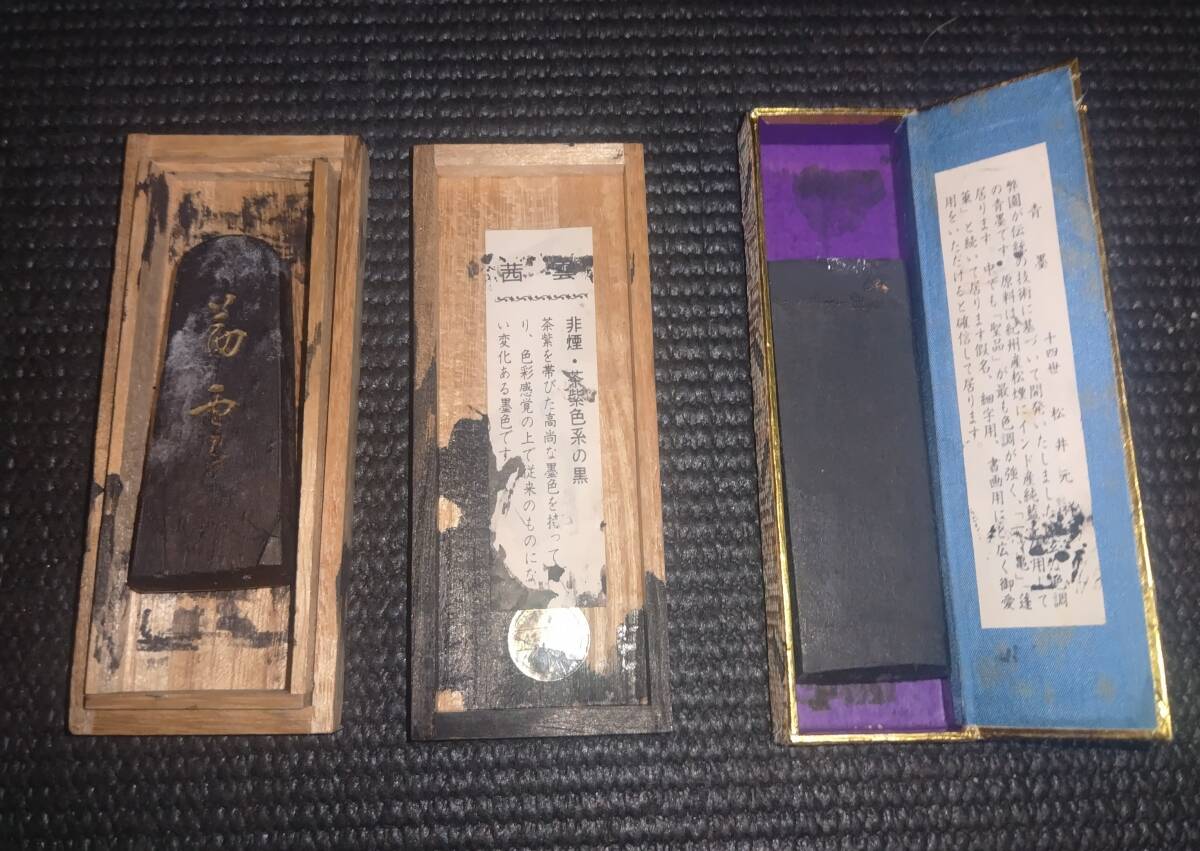 茜雲
茜雲
非煙・茶紫色系の黒
茶紫を帯びた高尚な墨色を持って
り、色彩感覚の上で従来のものにな
い変化ある墨色です
青墨
十四世 松井元
弊園が伝統の技術に基づいて開発いたしました 色調
の青墨です。原料は紀州産松煙にインド産純藍 用 て
居ります 中でも「聖品」が最も色調が強く、 亀」逢
菓」と続いて居ります仮名、細字用、書画用に 広く御愛
用をいただけると確信して居ります